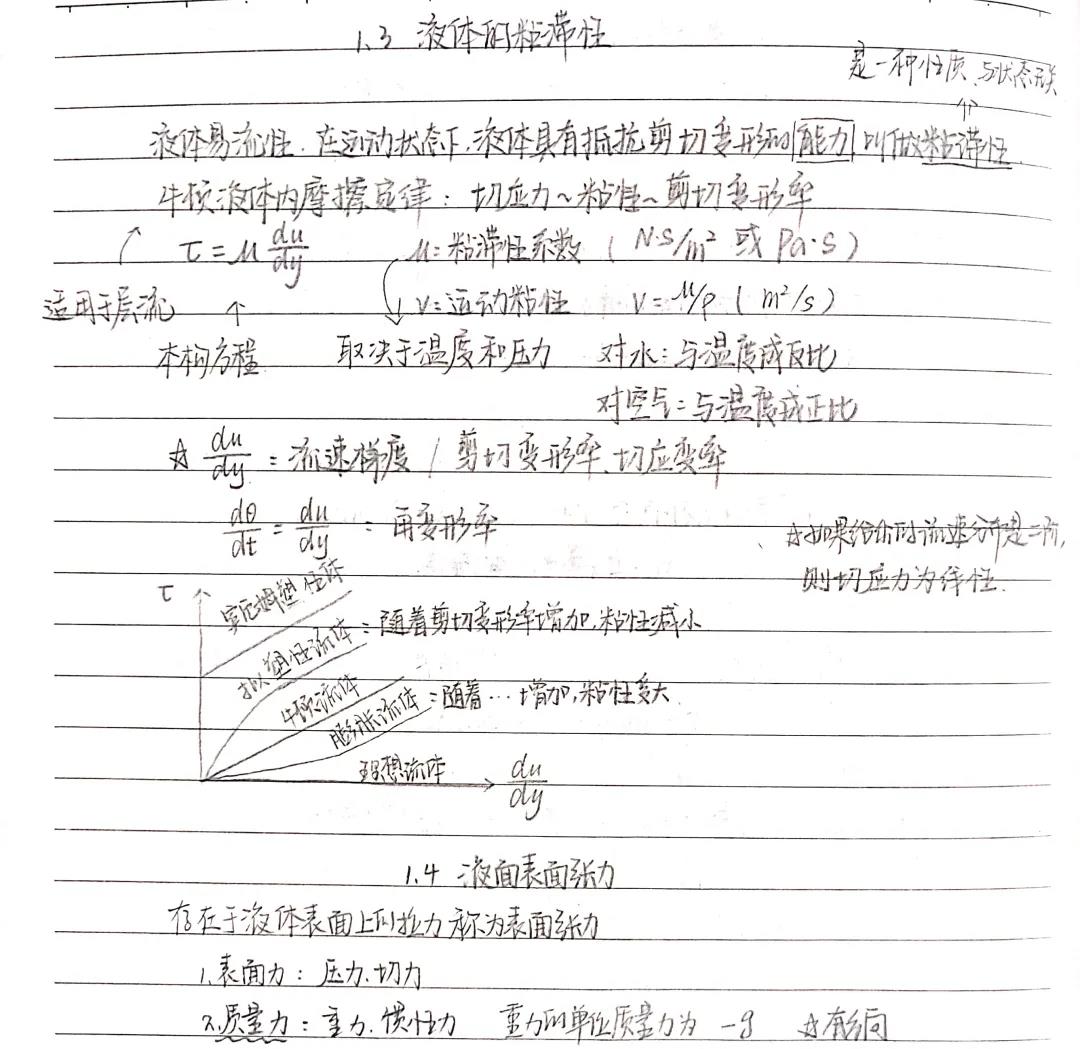 1.3 液体的粘滞性
是一种性质,与状态无关
液体易流性.在运动状态下,液体具有抵抗剪切变形的能力,叫做粘滞性
牛顿液体内摩擦定律:切应力~粘性~剪切变形率
τ=μ du/dy μ:粘滞性系数 ( N·S/m² 或 Pa·S )
适用于层流 ν=运动粘性 ν=μ/ρ ( m²/s )
本构方程 取决于温度和压力 对水:与温度成反比
对空气:与温度成正比
☆ du/dy:流速梯度 / 剪切变形率、切应变率
dθ/dt = du/dy :角变形率
☆如果给你的流速分布是二阶,
则切应力为线性.
τ
宾厄姆塑性体
拟塑性流体:随着剪切变形率增加,粘性减小
牛顿流体
膨胀流体:随着…增加,粘性变大
理想流体
du/dy
1.4 液面表面张力
存在于液体表面上的拉力称为表面张力
1.表面力:压力.切力
2.质量力:重力.惯性力 重力的单位质量力为 -g ☆有方向